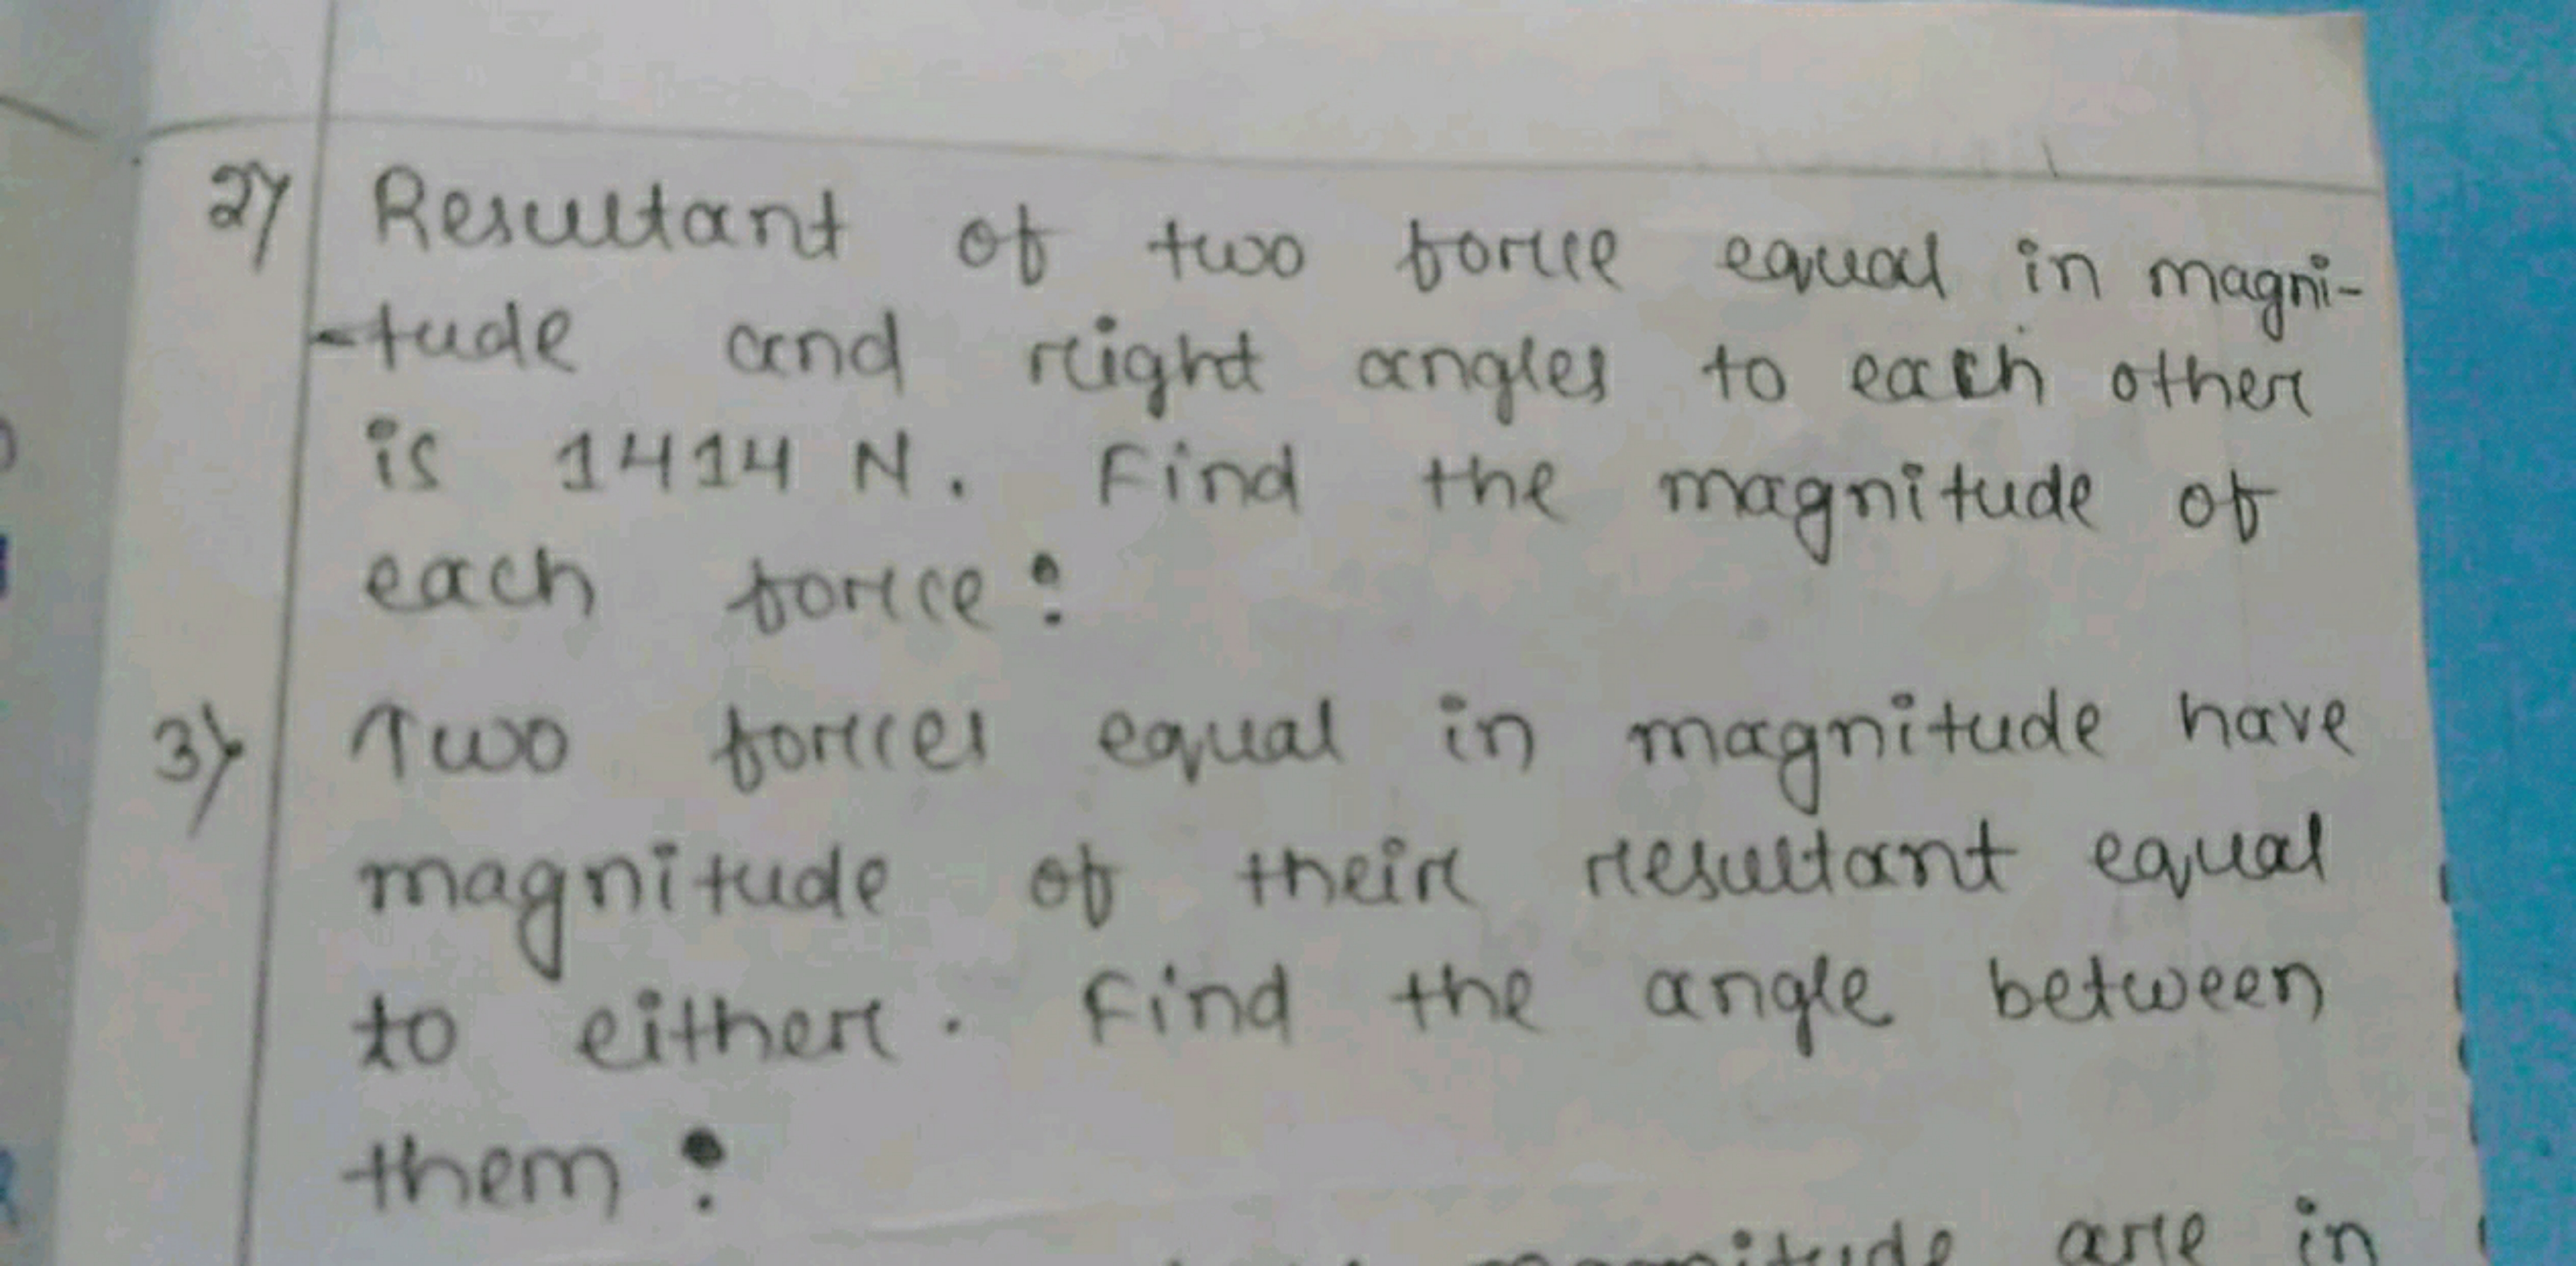 2) Resultant of two force equal in magni-
-tude and right angles to each other
is 1414 N. Find the magnitude of
each force?
3) Two forces equal in magnitude have
magnitude of their resultant equal
to either. Find the angle between
them?
magnitude are in